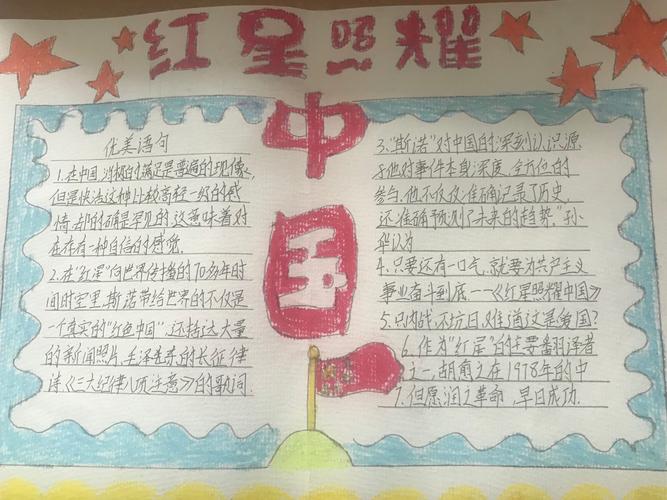 红星照耀
中
国
优美语句
1.在中国,消极的满足是普遍的现像,
但是快活这种比较高轻一级的感
情,却的确是罕见的,这意味着对
在存有一种自信的感觉.
2.在"红星"向世界传播的70多年时
间时里,斯诺带给世界的不仅是
一个真实的"红色中国",还括达大量
的新闻照片、毛泽东的长征律
诗《三大纪律八项注意》的歌词.
3."斯诺"对中国的深刻认识源
于他对事件本身深度、全方位的
参与.他不仅仅准确记录了历史,
还准确预测了未来的趋势."孙
华认为
4.只要还有一口气,就要为共产主义
事业奋斗到底.——《红星照耀中国》
5.只内战,不抗日,难道这是爱国?
6.作为"红星"的主要翻译者
之一,胡愈之在1978年的中
7.但愿润之革命,早日成功.